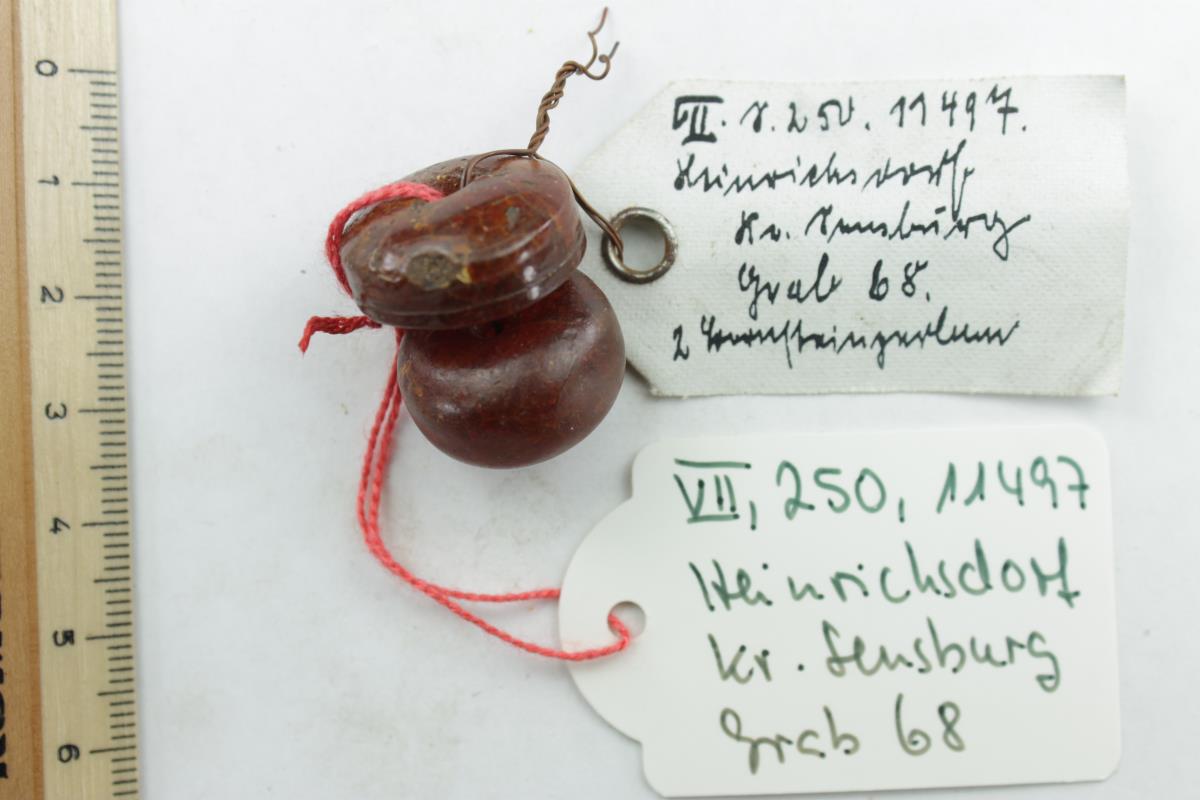 0
1
2
3
4
5
6
VII. S. 250. 11497.
Heinrichsdorf,
Kr. Sensburg
Grab 68.
2 Bernsteinperlen
VII, 250, 11497
Heinrichsdorf
Kr. Sensburg
Grab 68